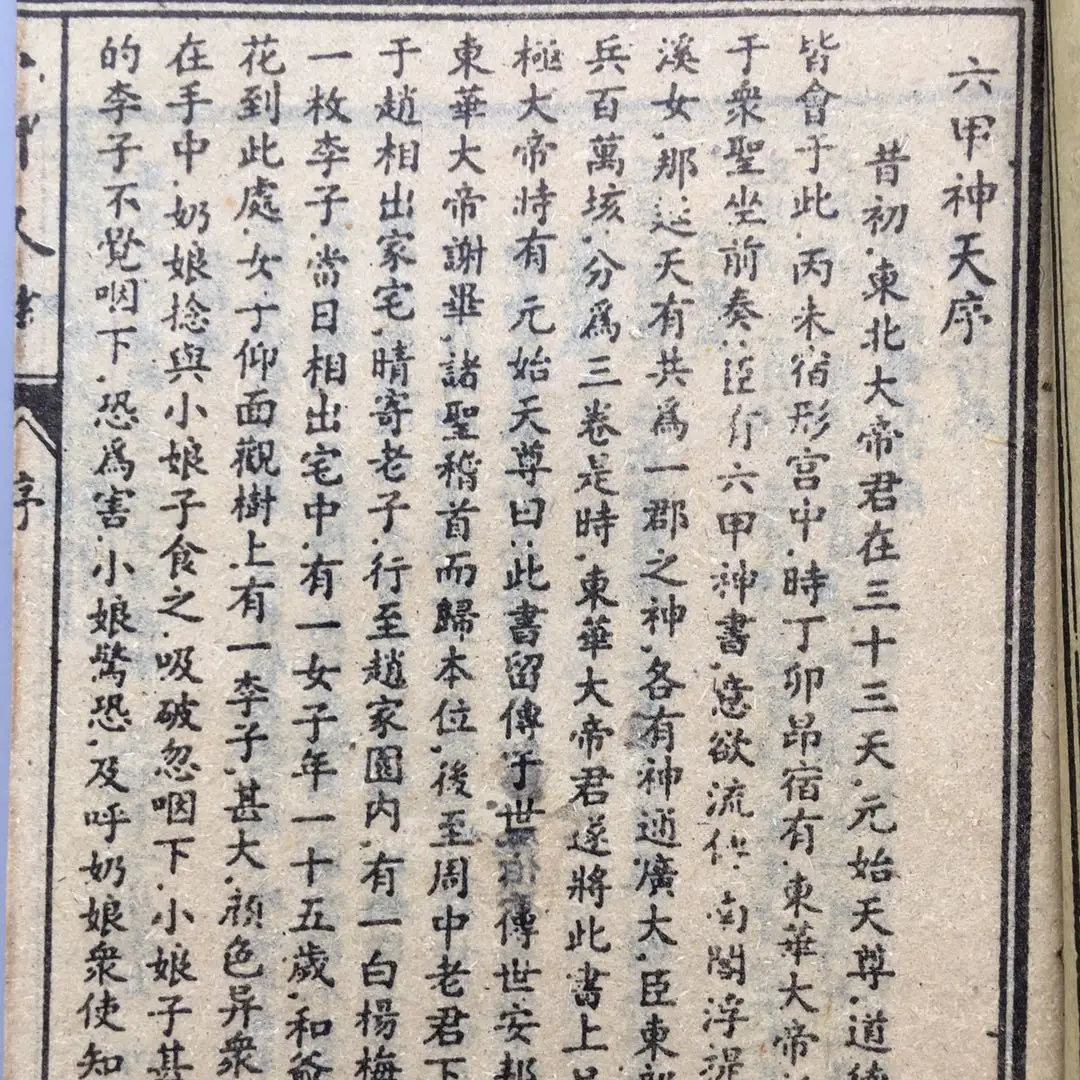 六甲神天序
昔初.東北大帝君在三十三天.元始天尊.道德
皆會于此.丙朱宿形宫中.時丁卯昂宿有.東華大帝
于衆聖坐前奏.臣有六甲神書.意欲流傳.南閻浮提
溪女.那延天有共爲一郡之神.各有神通廣大.臣東部
兵百萬垓.分爲三卷是時.東華大帝君遂將此書上
極大帝時有元始天尊曰.此書留傳于世傳世安邦
東華大帝謝畢.諸聖稽首而歸本位.後至周中老君下
于趙相出家宅.晴寄老子.行至趙家園内.有一白楊梅
一枚李子.當日相出宅中.有一女子年一十五歲.和爺
花到此處.女子仰面觀樹上有一李子.甚大.顔色异衆
在手中.奶娘捻與小娘子食之.吸破忽咽下.小娘子甚
的李子不覺咽下.恐爲害.小娘驚恐.及呼奶娘衆使知
序